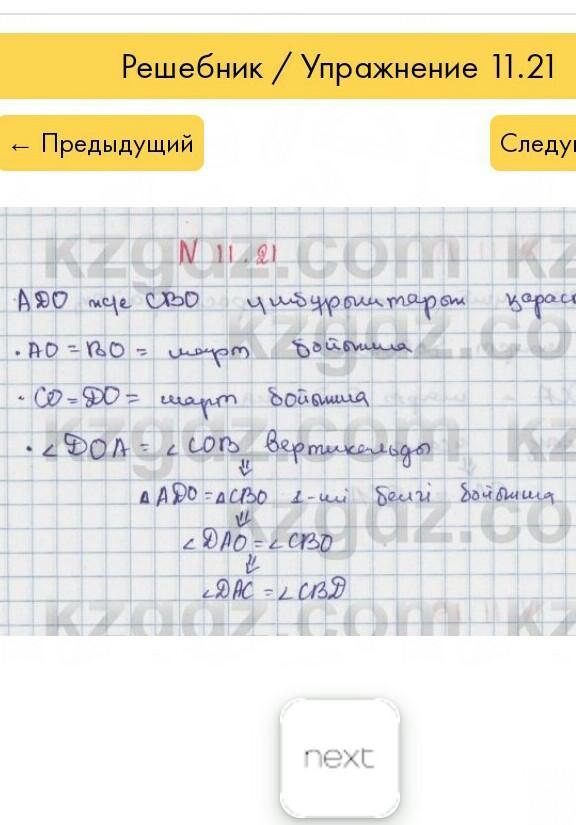 Решебник / Упражнение 11.21
← Предыдущий
Следу
kzgdz.com
N 11.21
ADO және CBO үшбұрыштарын қарас
kzgdz.com
· AO = BO = шарт бойынша
· CO = DO = шарт бойынша
· ∠DOA = ∠COB вертикальды
kzgdz.com
⇓
△ADO = △CBO 1-ші белгі бойынша
⇓
kzgdz.com
∠DAO = ∠CBO
⇓
∠DAC = ∠CBD
kzgdz.com
next